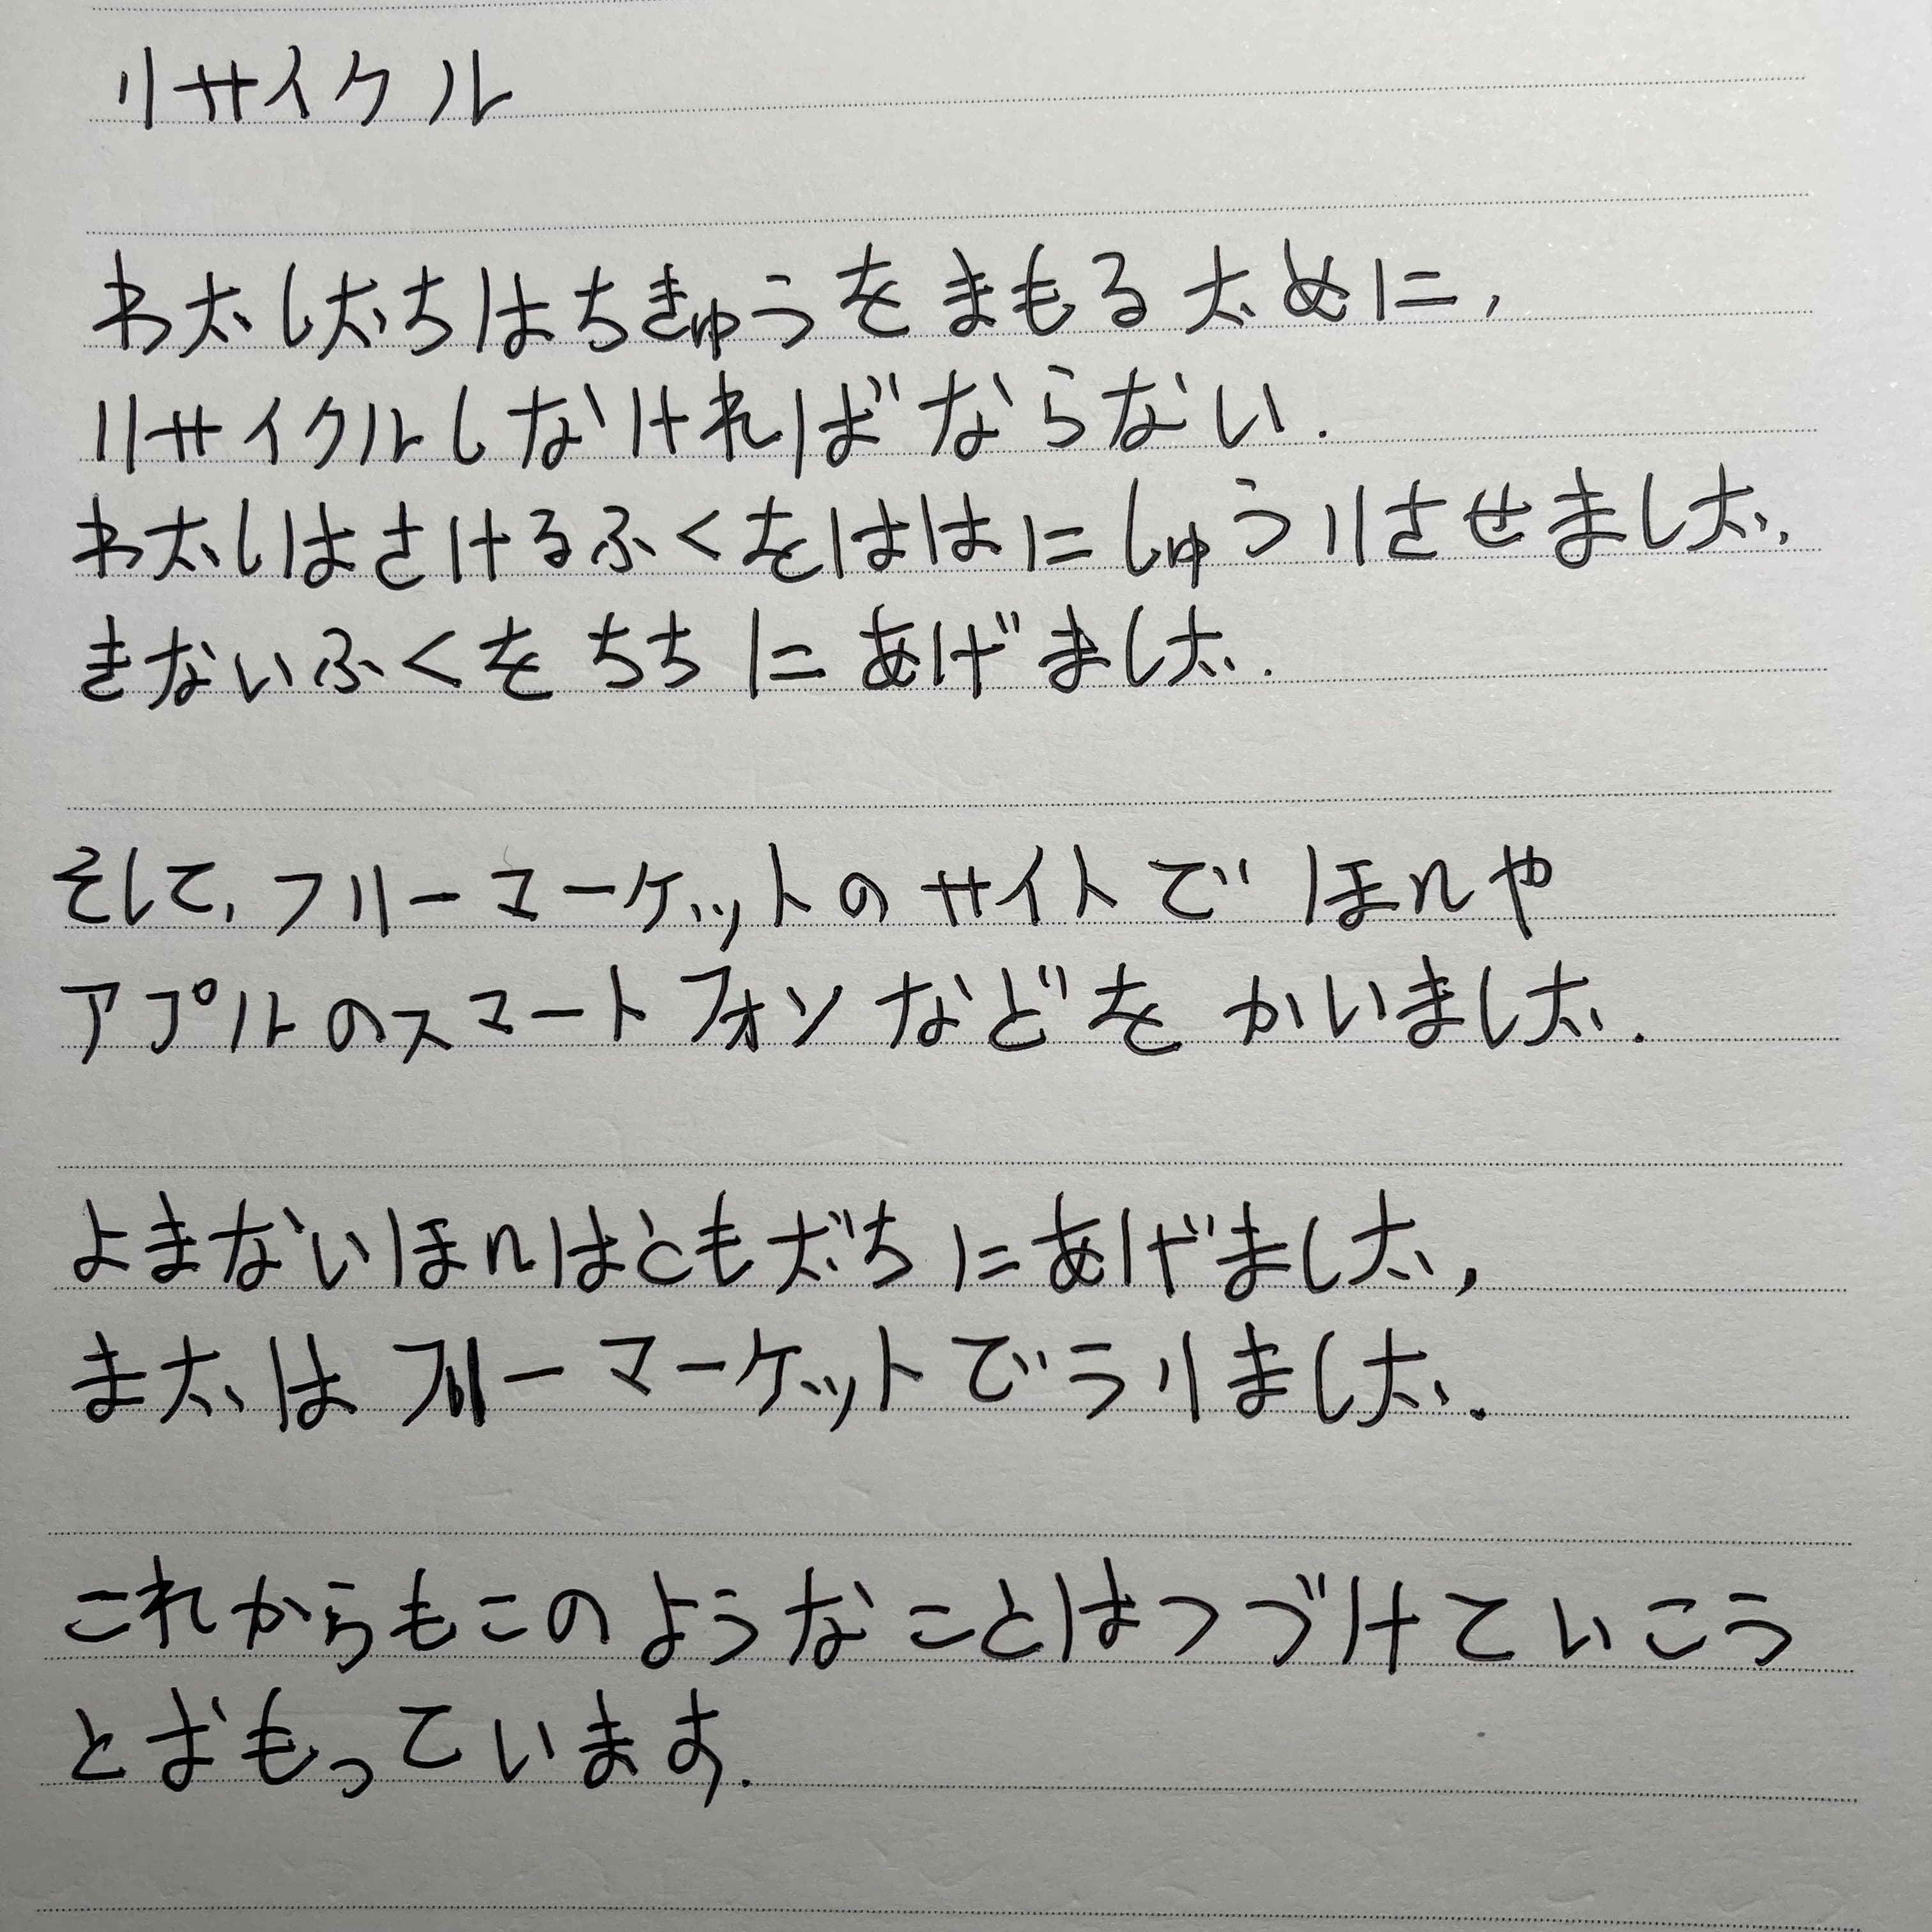 リサイクル
わたしたちはちきゅうをまもるために,
リサイクルしなければならない.
わたしはさけるふくをははにしゅうりさせました.
きないふくをちちにあげました.
そして,フリーマーケットのサイトでほんや
アプルのスマートフォンなどをかいました.
よまないほんはともだちにあげました,
またはフリーマーケットでうりました.
これからもこのようなことはつづけていこう
とおもっています.